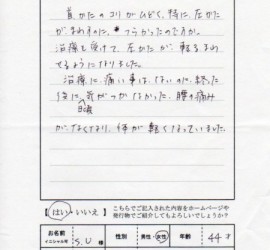 首かたのコリがひどく、特に、左かた
がまわすのに、つらかったのですが、
治療も受けて、左かたが、軽くまわ
せるようになりました。
治療に痛い事は、ないのに、終った
後に、気がつかなかった、腰の痛み
日頃
がなくなり、体が軽くなっていました。
はい・いいえ
こちらでご記入された内容をホームページや
発行物でご紹介してもよろしいでしょうか？
お名前
イニシャル可
S.U 様
性別
男性・女性
年齢
44才